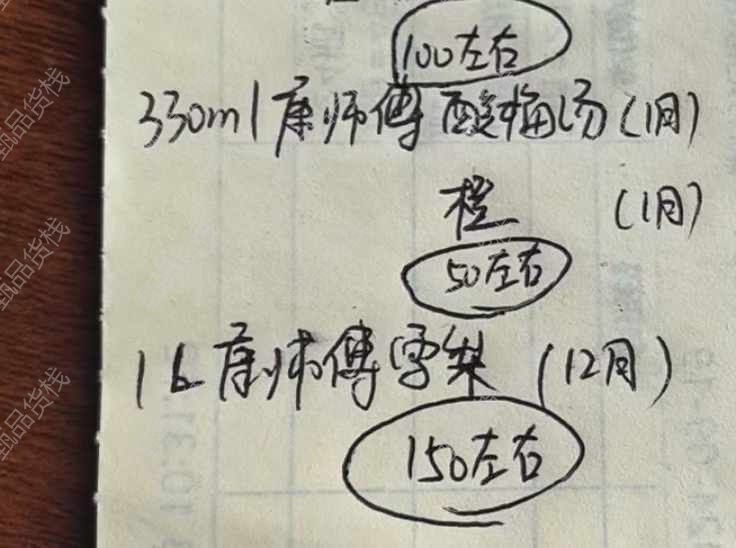 100左右
330ml康师傅酸梅汤(1月)
橙 (1月)
50左右
1L康师傅雪梨 (12月)
150左右
甄品货栈
甄品货栈
甄品货栈